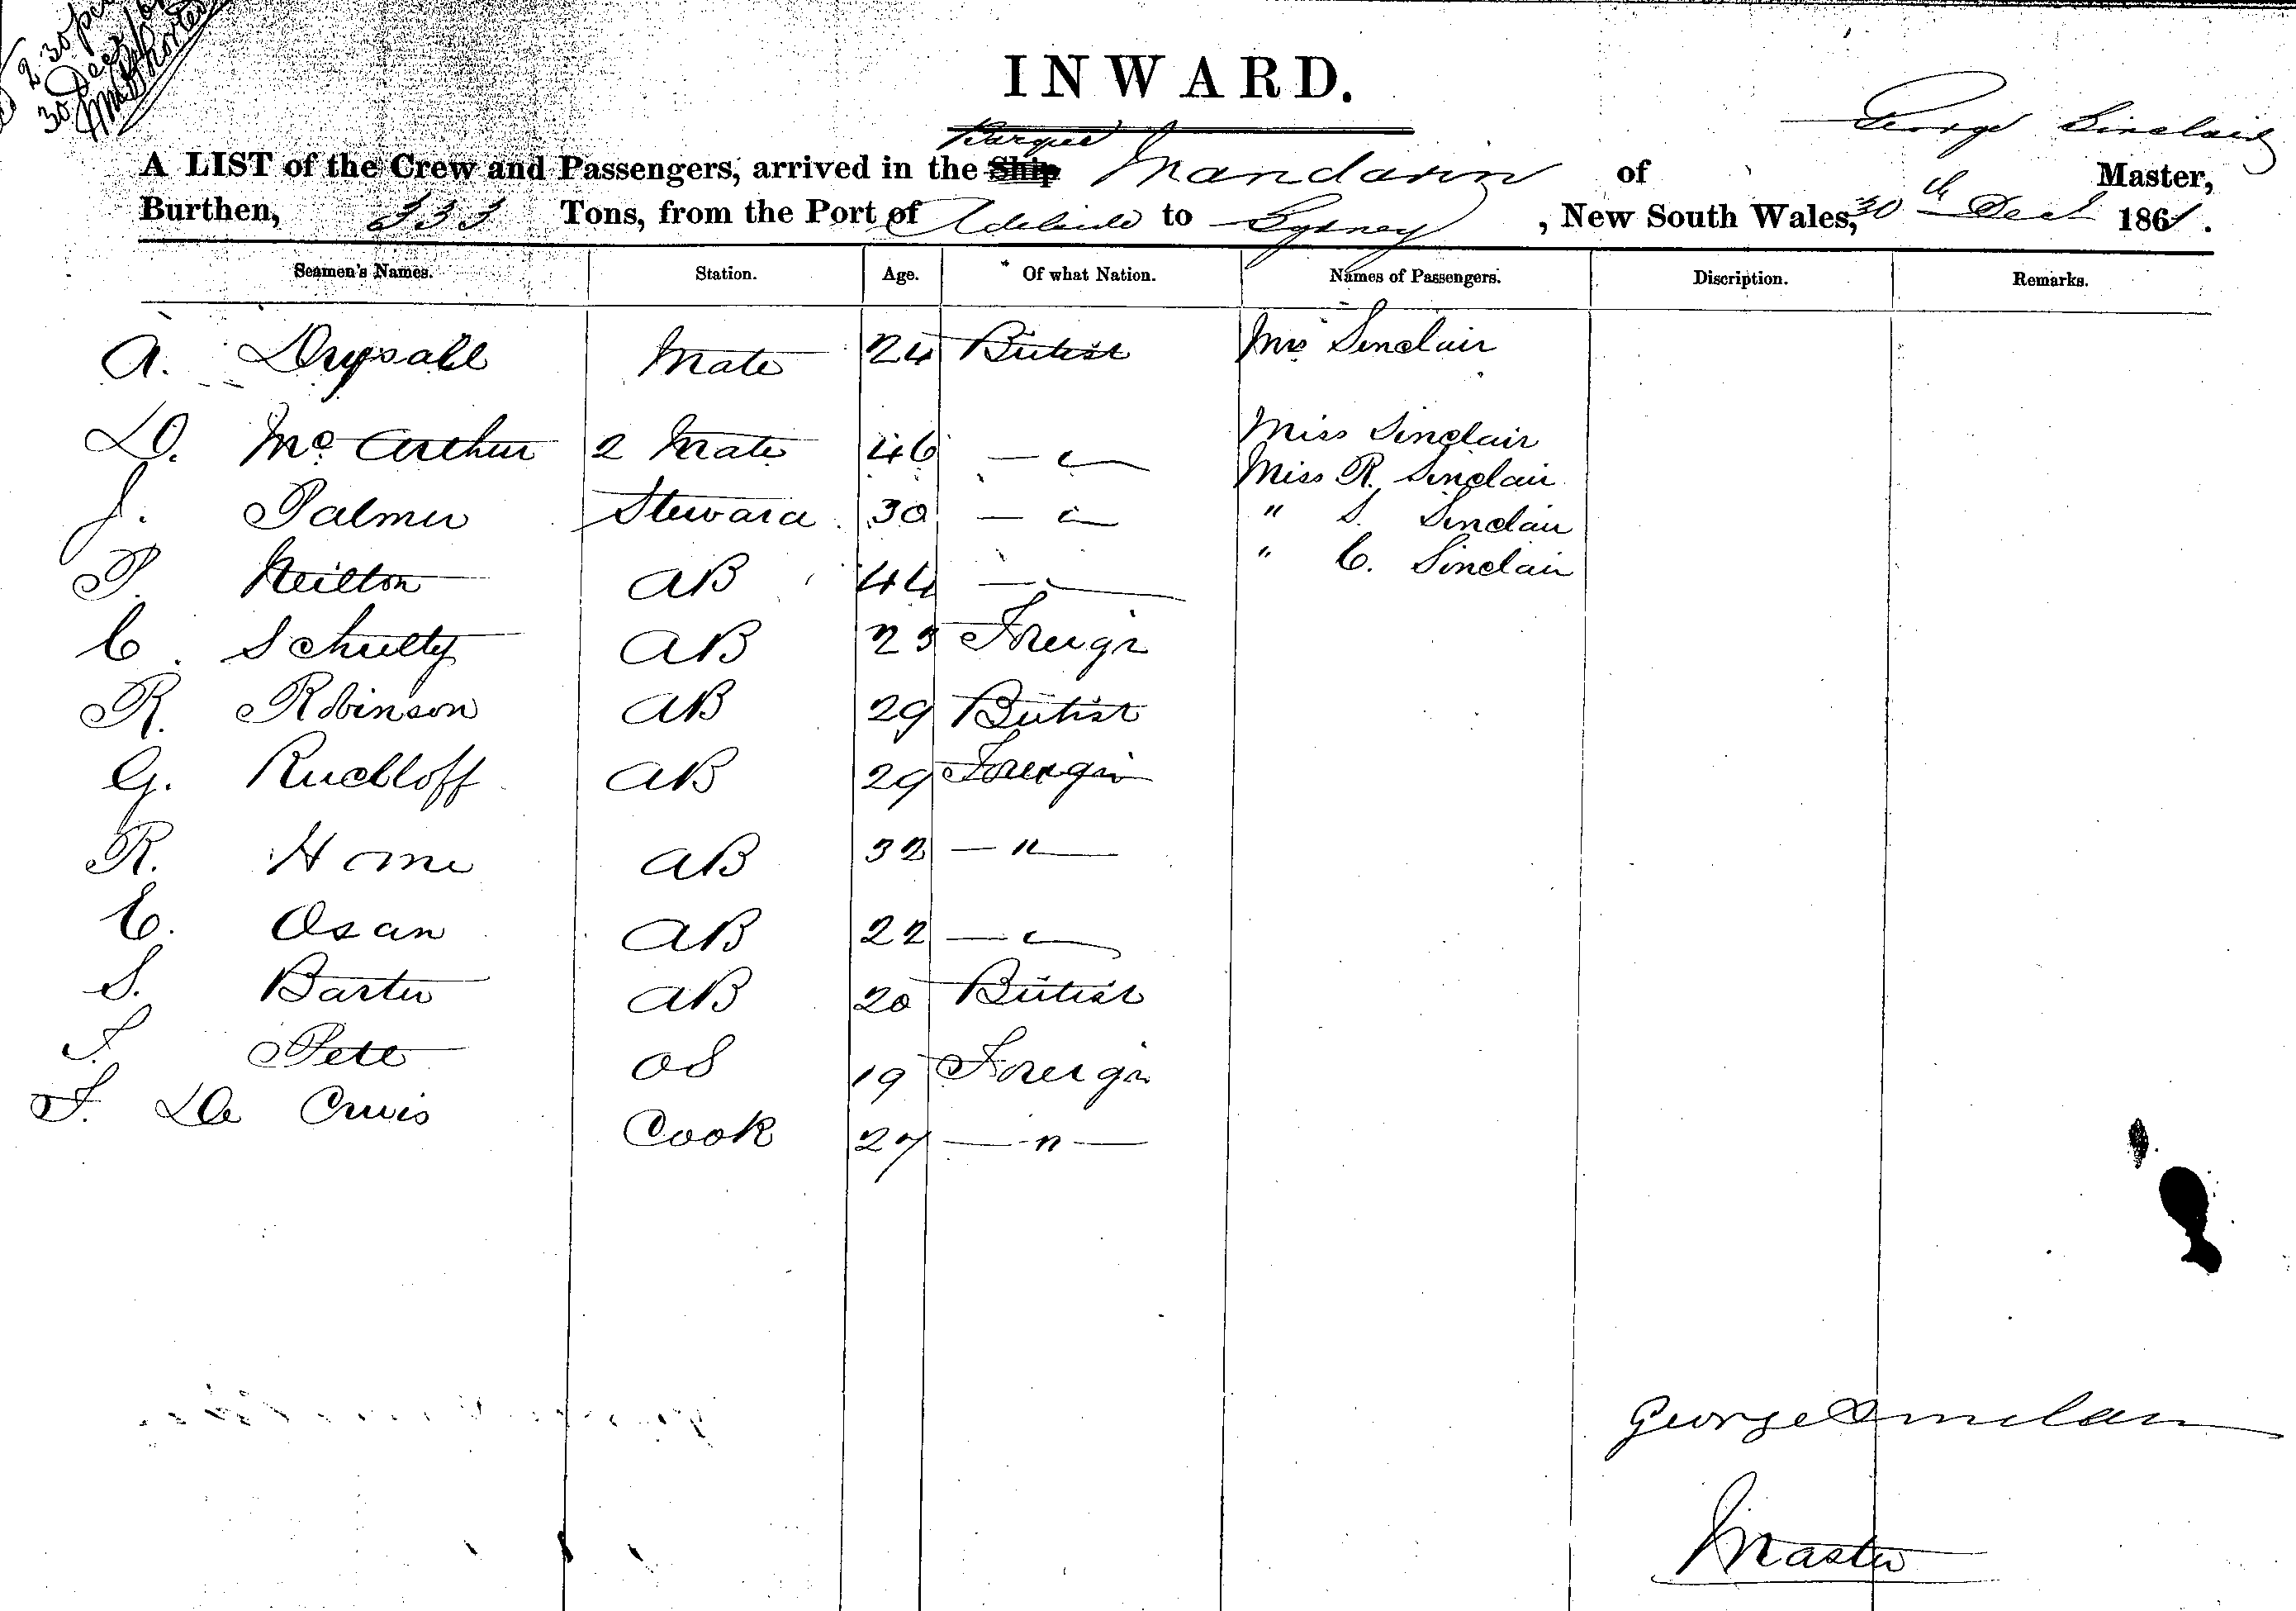 2 30 pm
30 Decr
INWARD.
George Sinclair
Barque
A LIST of the Crew and Passengers, arrived in the Ship Mandarin of Master,
Burthen, 333 Tons, from the Port of Adelaide to Sydney, New South Wales, 30th Decr 1861.
Seamen's Names. Station. Age. Of what Nation. Names of Passengers. Discription. Remarks.
A. Drysdale Mate 24 British Mrs Sinclair
D. Mc Arthur 2 Mate 46 — " — Miss Sinclair
Miss R. Sinclair
J. Palmer Steward 30 — " — " S. Sinclair
P. Neilton AB 44 — " — " C. Sinclair
C. Schulty AB 23 Foreign
R. Robinson AB 29 British
G. Ruckloff AB 29 Foreign
R. Horne AB 32 — " —
E. Osan AB 22 — " —
S. Barter AB 20 British
Pete OS 19 Foreign
F. De Cruis Cook 27 — " —
George Sinclair
Master